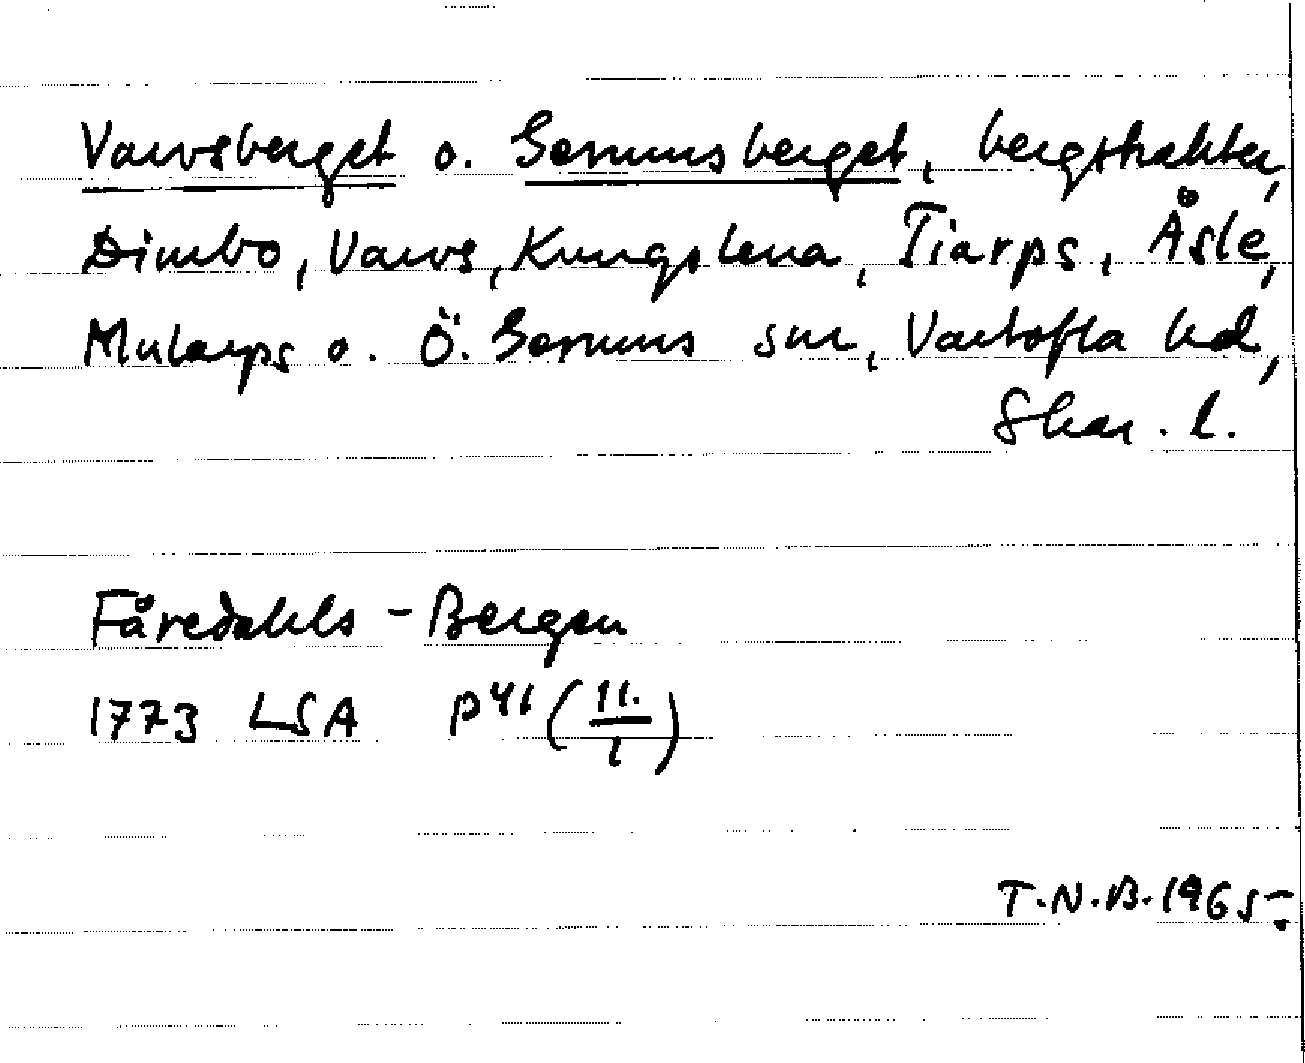 Varvsberget o. Gerumsberget, bergstrakter,
Dimbo, Varvs, Kungslena, Tiarps, Åsle,
Mularps o. Ö. Gerums snr, Vartofta hd,
Skar. l.
Fåredahls - Bergen
1773 LSA P 41 (11./1)
T.N.B. 1965.